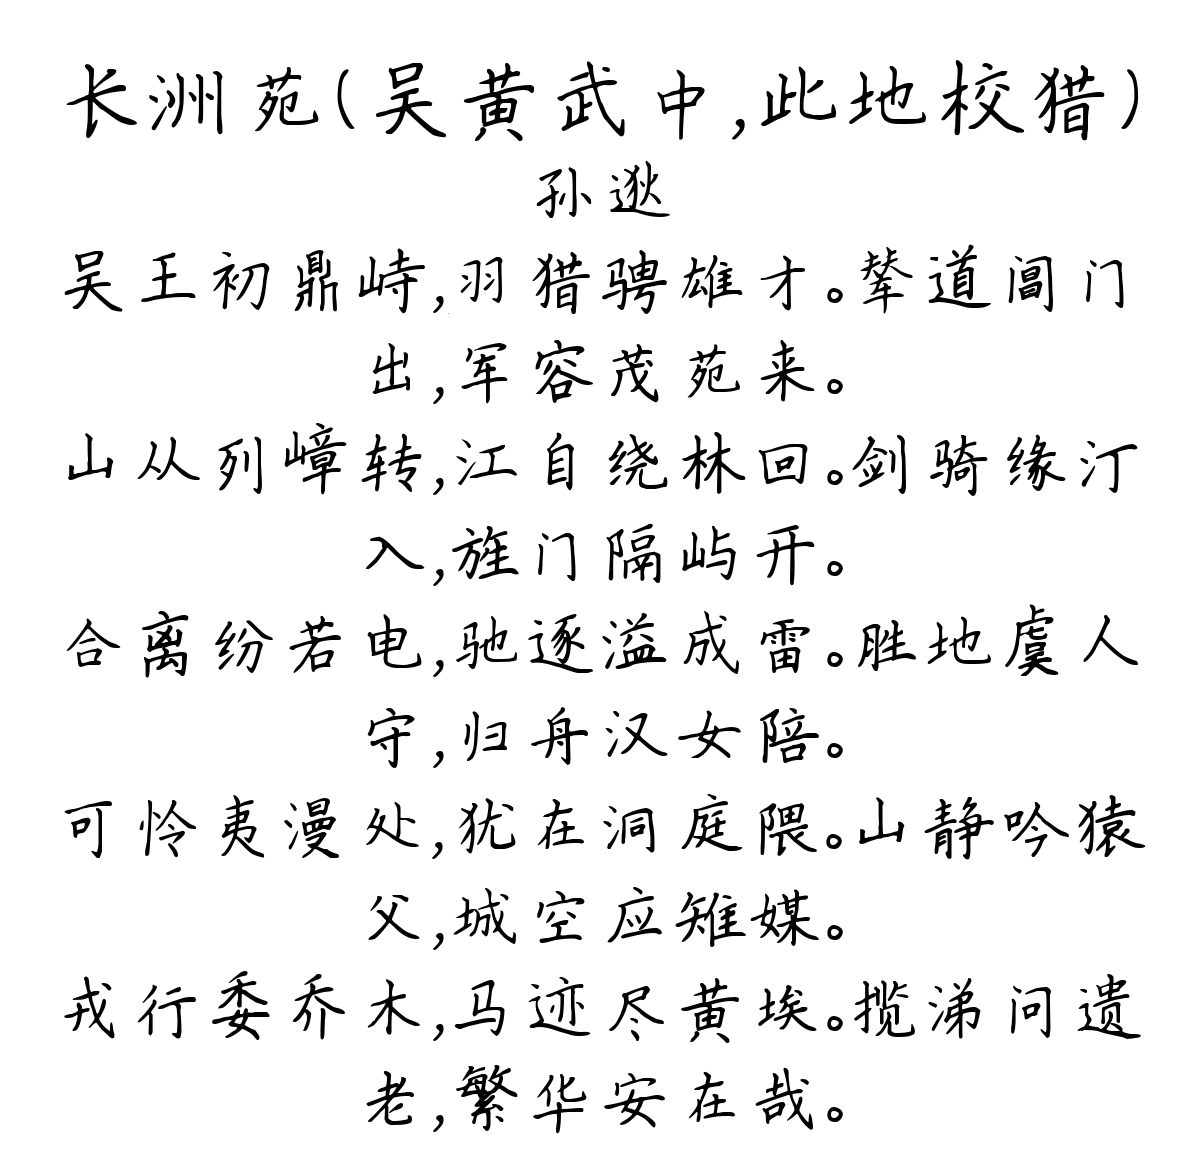 长洲苑(吴黄武中,此地校猎)
孙逖
吴王初鼎峙,羽猎骋雄才。辇道阊门
出,军容茂苑来。
山从列嶂转,江自绕林回。剑骑缘汀
入,旌门隔屿开。
合离纷若电,驰逐溢成雷。胜地虞人
守,归舟汉女陪。
可怜夷漫处,犹在洞庭隈。山静吟猿
父,城空应雉媒。
戎行委乔木,马迹尽黄埃。揽涕问遗
老,繁华安在哉。